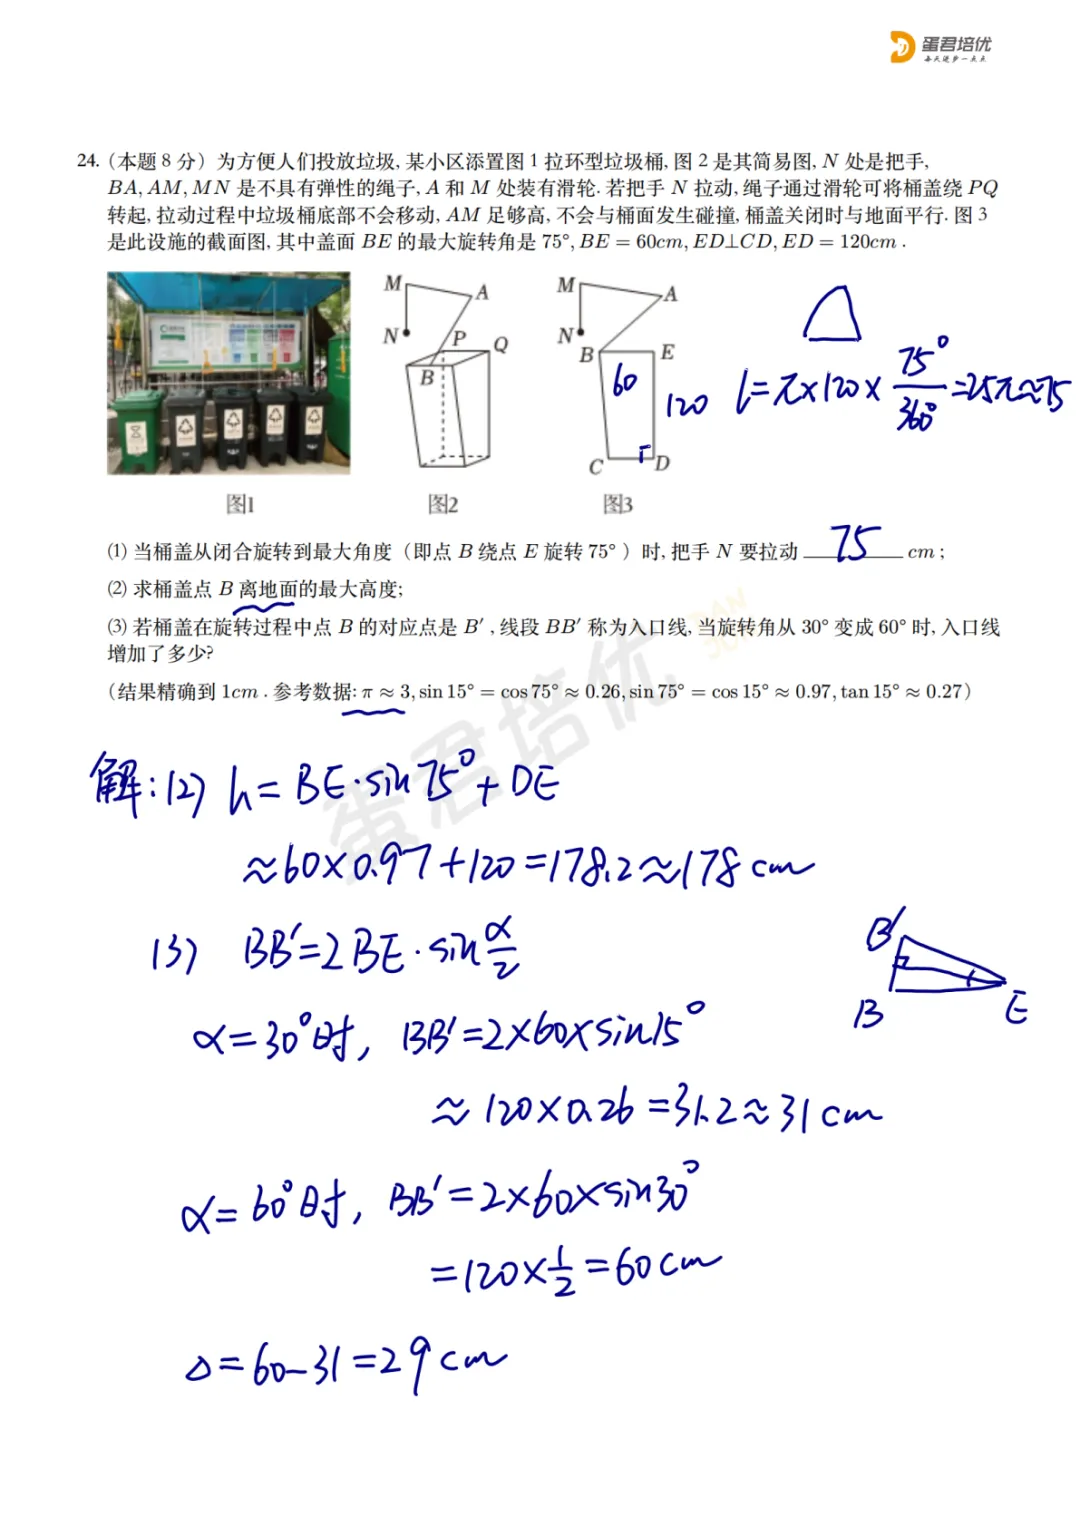 蛋君培优
每天进步一点点
24.(本题 8 分) 为方便人们投放垃圾, 某小区添置图 1 拉环型垃圾桶, 图 2 是其简易图, N 处是把手,
BA, AM, MN 是不具有弹性的绳子, A 和 M 处装有滑轮. 若把手 N 拉动, 绳子通过滑轮可将桶盖绕 PQ
转起, 拉动过程中垃圾桶底部不会移动, AM 足够高, 不会与桶面发生碰撞, 桶盖关闭时与地面平行. 图 3
是此设施的截面图, 其中盖面 BE 的最大旋转角是 75°, BE = 60cm, ED⊥CD, ED = 120cm .
M A N P Q B
图1
图2
M A N B E C D
图3
60
120
l=π×120×75°/360°=25π≈75
(1) 当桶盖从闭合旋转到最大角度（即点 B 绕点 E 旋转 75°）时, 把手 N 要拉动 75 cm ;
(2) 求桶盖点 B 离地面的最大高度;
(3) 若桶盖在旋转过程中点 B 的对应点是 B′ , 线段 BB′ 称为入口线, 当旋转角从 30° 变成 60° 时, 入口线
增加了多少?
(结果精确到 1cm . 参考数据: π ≈ 3, sin 15° = cos 75° ≈ 0.26, sin 75° = cos 15° ≈ 0.97, tan 15° ≈ 0.27)
蛋君培优
解:(2) h=BE·sin75°+DE
≈60×0.97+120=178.2≈178cm
(3) BB′=2BE·sinα/2
B′
B E
α=30°时, BB′=2×60×sin15°
≈120×0.26=31.2≈31cm
α=60°时, BB′=2×60×sin30°
=120×1/2=60cm
△=60-31=29cm